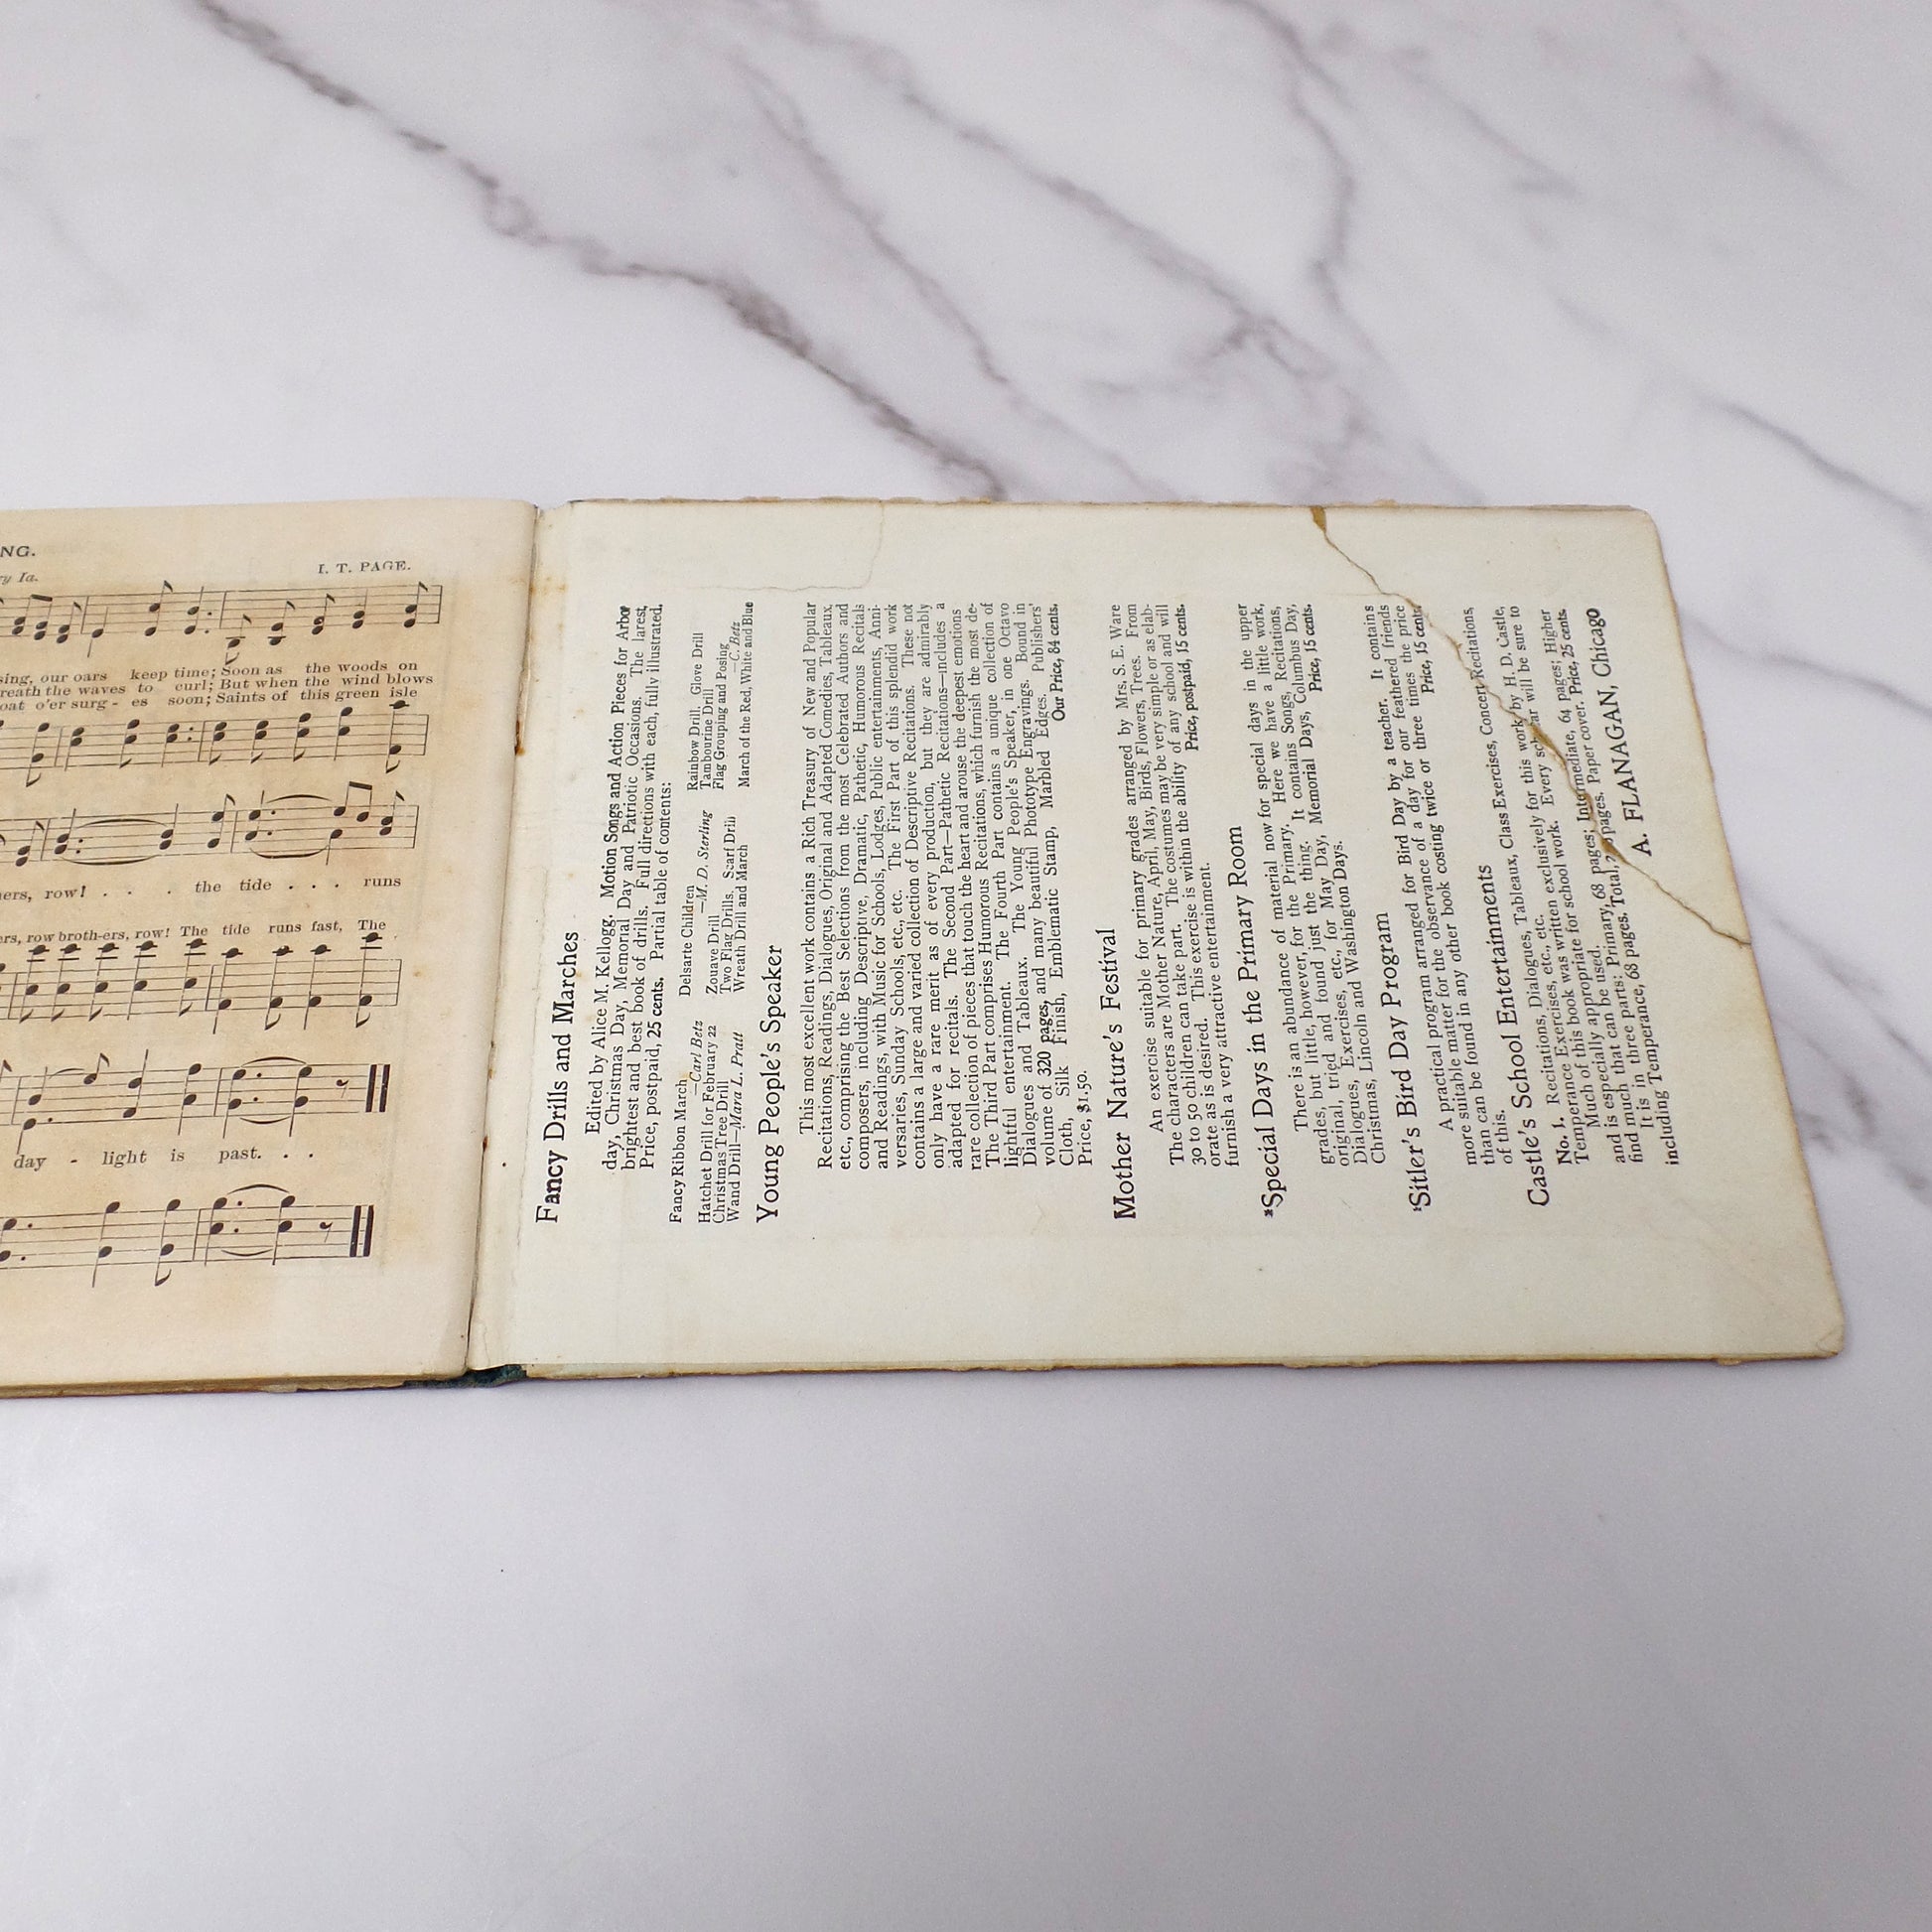 NG.
ry Ia.
I. T. PAGE.
sing, our oars keep time; Soon as the woods on
reath the waves to curl; But when the wind blows
oat o'er surg - es soon; Saints of this green isle
ers, row! . . . the tide . . . runs
ers, row broth-ers, row! The tide runs fast, The
day - light is past. . .
Fancy Drills and Marches
Edited by Alice M. Kellogg. Motion Songs and Action Pieces for Arbor
day, Christmas Day, Memorial Day and Patriotic Occasions. The larest,
brightest and best book of drills. Full directions with each, fully illustrated.
Price, postpaid, 25 cents. Partial table of contents:
Fancy Ribbon March
—Carl Betz
Hatchet Drill for February 22
Christmas Tree Drill
Wand Drill—Mara L. Pratt
Delsarte Children
—M. D. Sterling
Zouave Drill
Two Flag Drills. Scarf Drill
Wreath Drill and March
Rainbow Drill. Glove Drill
Tambourine Drill
Flag Grouping and Posing
—C. Betz
March of the Red, White and Blue
Young People's Speaker
This most excellent work contains a Rich Treasury of New and Popular
Recitations, Readings, Dialogues, Original and Adapted Comedies, Tableaux,
etc., comprising the Best Selections from the most Celebrated Authors and
composers, including Descriptive, Dramatic, Pathetic, Humorous Recitals
and Readings, with Music for Schools, Lodges, Public entertainments, Anni-
versaries, Sunday Schools, etc., etc. The First Part of this splendid work
contains a large and varied collection of Descriptive Recitations. These not
only have a rare merit as of every production, but they are admirably
adapted for recitals. The Second Part—Pathetic Recitations—includes a
rare collection of pieces that touch the heart and arouse the deepest emotions
The Third Part comprises Humorous Recitations, which furnish the most de-
lightful entertainment. The Fourth Part contains a unique collection of
Dialogues and Tableaux. The Young People's Speaker, in one Octavo
volume of 320 pages, and many beautiful Phototype Engravings. Bound in
Cloth, Silk Finish, Emblematic Stamp, Marbled Edges. Publishers'
Price, $1.50. Our Price, 84 cents.
Mother Nature's Festival
An exercise suitable for primary grades arranged by Mrs. S. E. Ware
The characters are Mother Nature, April, May, Birds, Flowers, Trees. From
30 to 50 children can take part. The costumes may be very simple or as elab-
orate as is desired. This exercise is within the ability of any school and will
furnish a very attractive entertainment. Price, postpaid, 15 cents.
Special Days in the Primary Room
There is an abundance of material now for special days in the upper
grades, but little, however, for the Primary. Here we have a little work,
original, tried and found just the thing. It contains Songs, Recitations,
Dialogues, Exercises, etc., for May Day, Memorial Days, Columbus Day,
Christmas, Lincoln and Washington Days. Price, 15 cents.
Sitler's Bird Day Program
A practical program arranged for Bird Day by a teacher. It contains
more suitable matter for the observance of a day for our feathered friends
than can be found in any other book costing twice or three times the price
of this. Price, 15 cents.
Castle's School Entertainments
No. 1. Recitations, Dialogues, Tableaux, Class Exercises, Concert Recitations,
Temperance Exercises, etc., etc.
Much of this book was written exclusively for this work by H. D. Castle,
and is especially appropriate for school work. Every scholar will be sure to
find much that can be used.
It is in three parts: Primary, 68 pages; Intermediate, 64 pages; Higher
including Temperance, 68 pages. Total, pages. Paper cover. Price, 25 cents.
A. FLANAGAN, Chicago